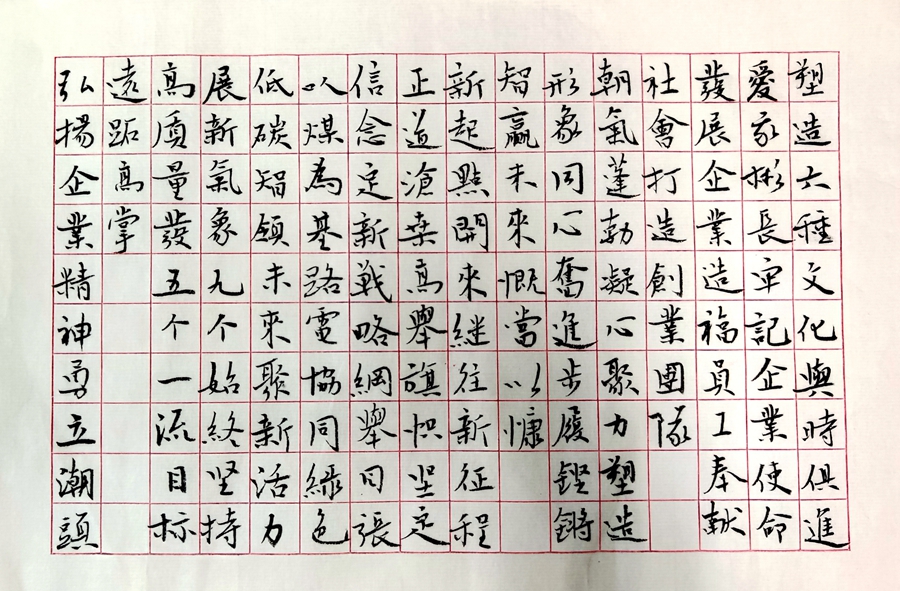 塑造六種文化與時俱進
愛家彬長牢記企業使命
發展企業造福員工奉献
社會打造創業團隊
朝氣蓬勃凝心聚力塑造
形象同心奮進步履鏗鏘
智贏未來慨當以慷
新起點開來継往新征程
正道滄桒高舉旗帜坚定
信念定新戰略綱舉目張
以煤為基路電協同緑色
低碳智領未來聚新活力
展新氣象九个始終坚持
高質量發五个一流目标
遠跖高掌
弘揚企業精神勇立潮頭